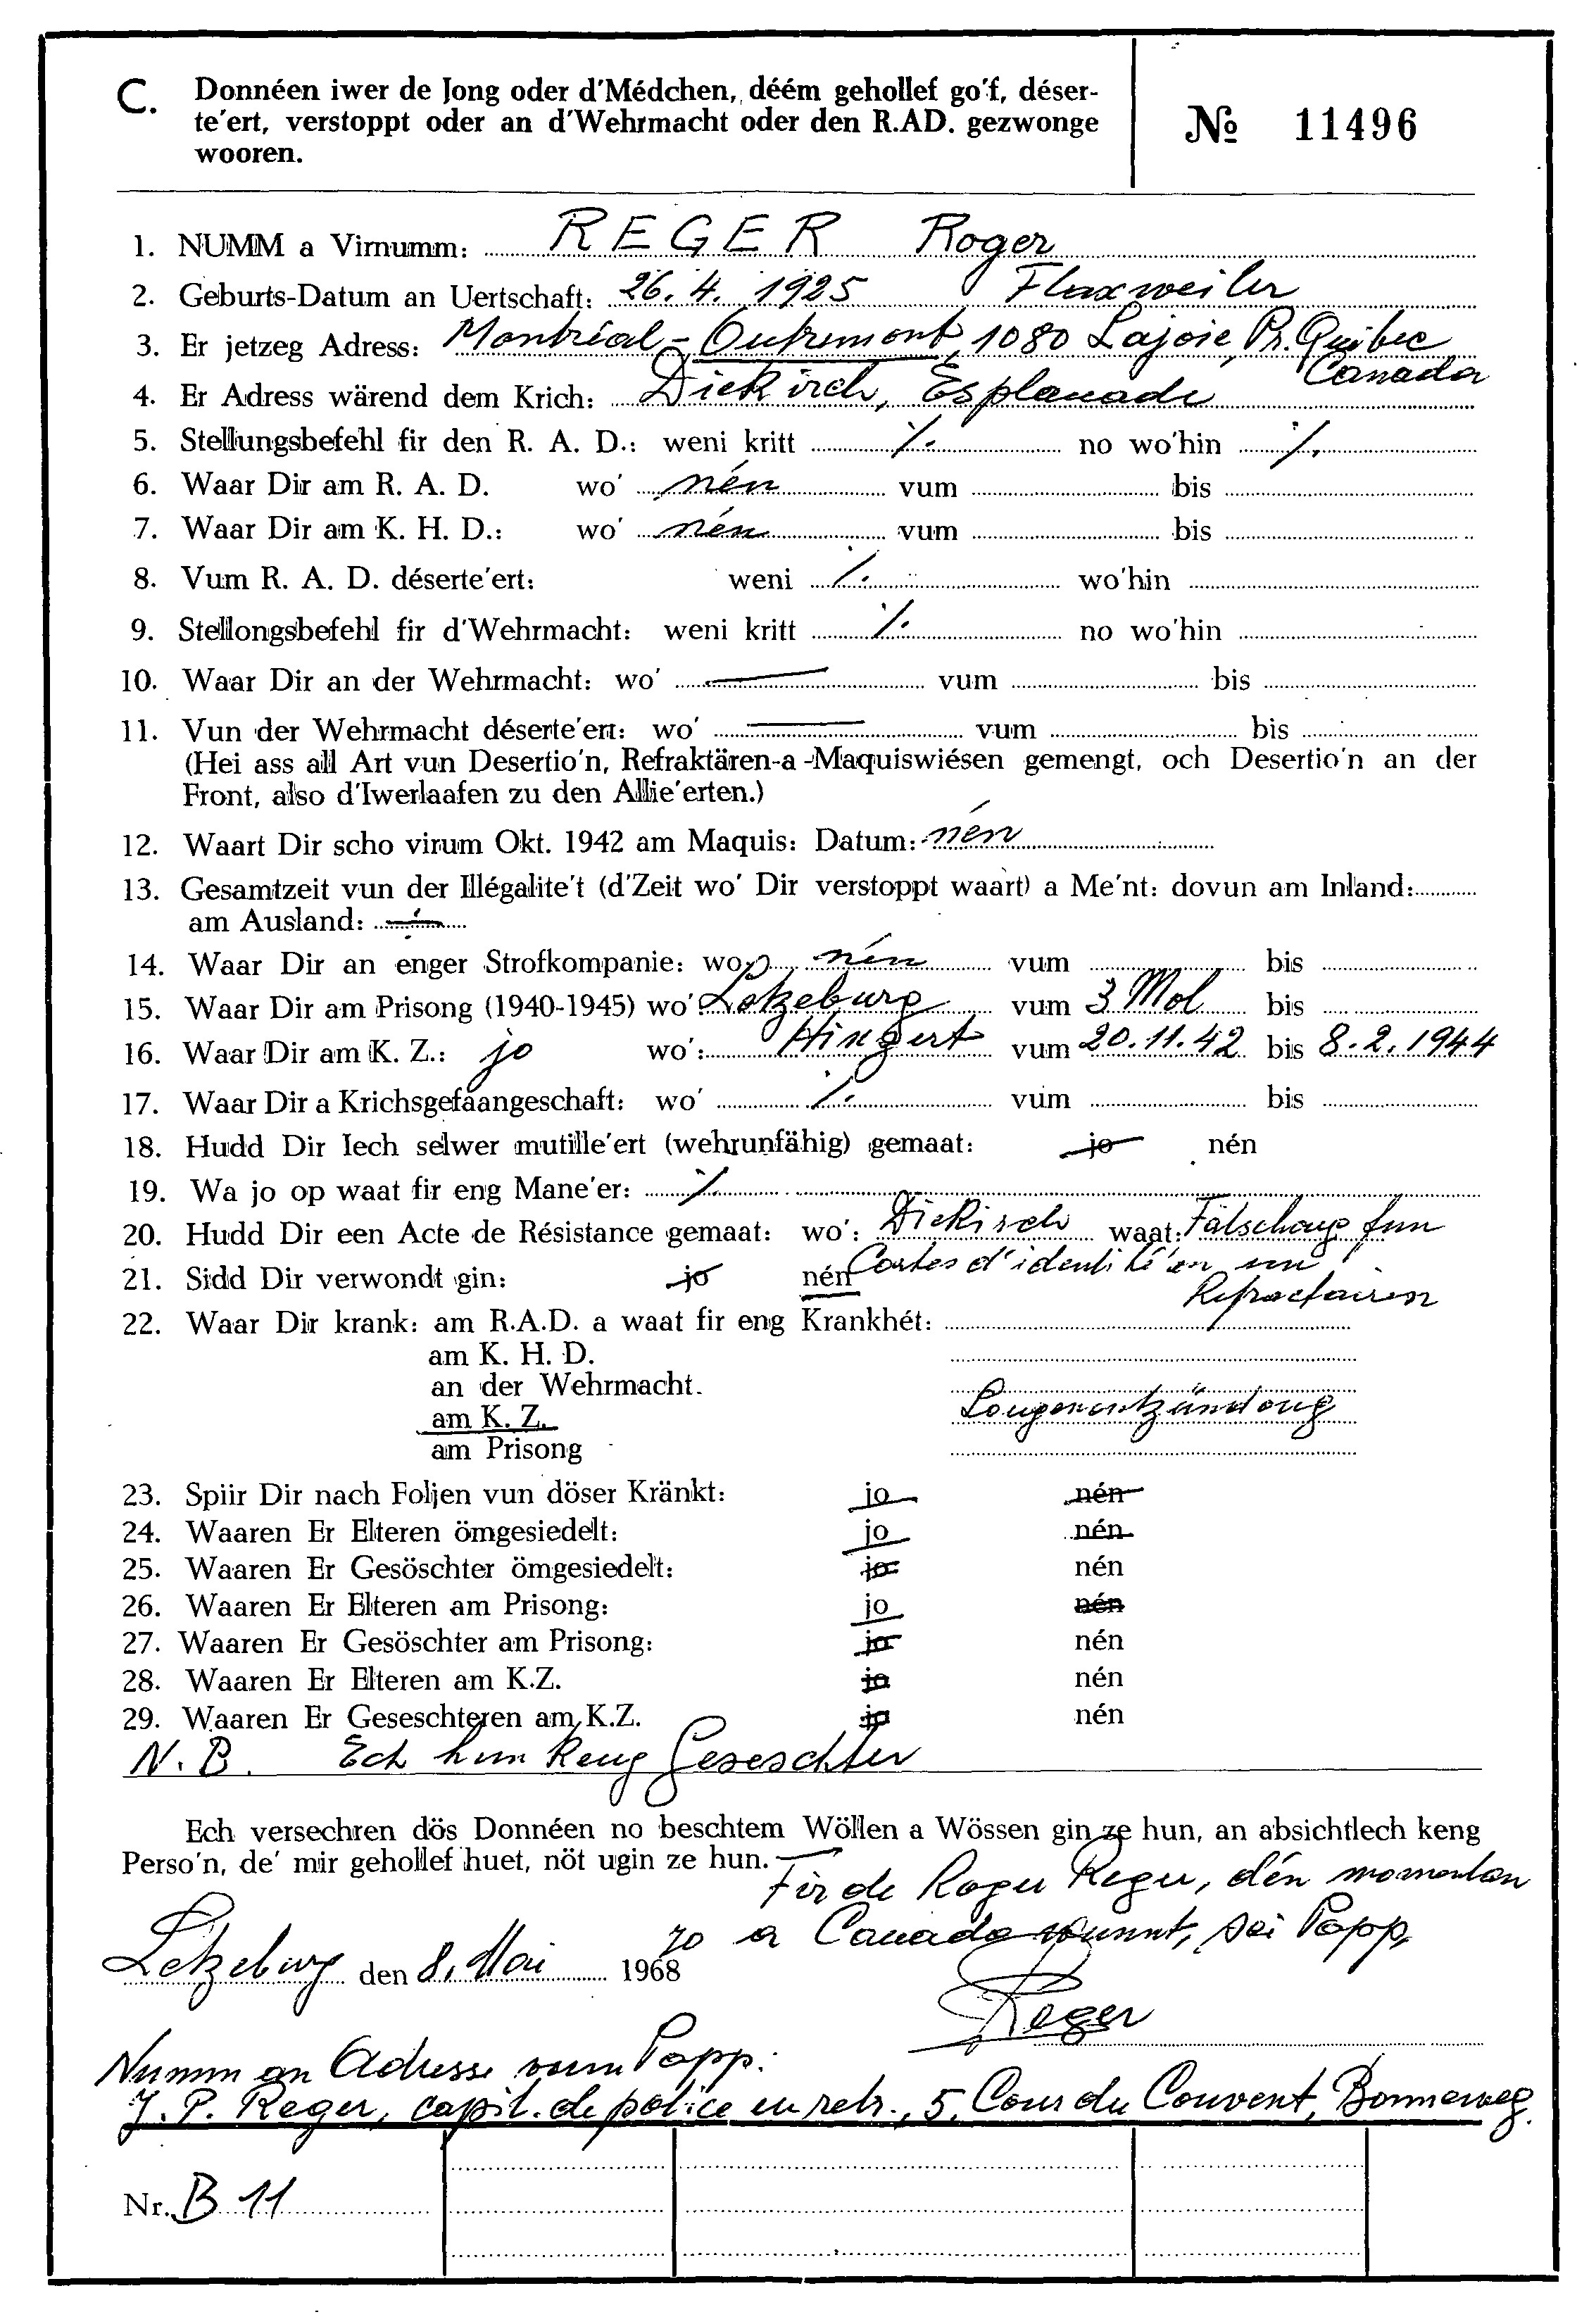 C. Donnéen iwer de Jong oder d'Médchen, déém gehollef go'f, déser-
te'ert, verstoppt oder an d'Wehrmacht oder den R.AD. gezwonge
wooren.
№ 11496
1. NUMM a Virnumm: REGER Roger
2. Geburts-Datum an Uertschaft: 26. 4. 1925 Flaxweiler
3. Er jetzeg Adress: Montréal - Outremont, 1080 Lajoie, Pr. Québec
Canada
4. Er Adress wärend dem Krich: Diekirch, Esplanade
5. Stellungsbefehl fir den R. A. D.: weni kritt ./. no wo'hin ./.
6. Waar Dir am R. A. D. wo' nén vum bis
7. Waar Dir am K. H. D.: wo' nén vum bis
8. Vum R. A. D. déserte'ert: weni ./. wo'hin
9. Stellongsbefehl fir d'Wehrmacht: weni kritt ./. no wo'hin
10. Waar Dir an der Wehrmacht: wo' — vum bis
11. Vun der Wehrmacht déserte'ert: wo' — vum bis
(Hei ass all Art vun Desertio'n, Refraktären-a-Maquiswiésen gemengt, och Desertio'n an der
Front, also d'Iwerlaafen zu den Allie'erten.)
12. Waart Dir scho virum Okt. 1942 am Maquis: Datum: nén
13. Gesamtzeit vun der Illégalite't (d'Zeit wo' Dir verstoppt waart) a Me'nt: dovun am Inland:
am Ausland: ./.
14. Waar Dir an enger Strofkompanie: wo' nén vum bis
15. Waar Dir am Prisong (1940-1945) wo' Letzeburg vum 3 Mol bis
16. Waar Dir am K. Z.: jo wo': Hinzert vum 20.11.42 bis 8.2.1944
17. Waar Dir a Krichsgefaangeschaft: wo' ./. vum bis
18. Hudd Dir Iech selwer mutille'ert (wehrunfähig) gemaat: jo nén
19. Wa jo op waat fir eng Mane'er: ./.
20. Hudd Dir een Acte de Résistance gemaat: wo': Diekirch waat: Fälschong fun
Cartes d'identité'en un
21. Sidd Dir verwondt gin: jo nén
Refractairen
22. Waar Dir krank: am R.A.D. a waat fir eng Krankhét:
am K. H. D.
an der Wehrmacht.
am K. Z. Longenentzündong
am Prisong
23. Spiir Dir nach Foljen vun döser Kränkt: jo nén
24. Waaren Er Elteren ömgesiedelt: jo nén
25. Waaren Er Gesöschter ömgesiedelt: jo nén
26. Waaren Er Elteren am Prisong: jo nén
27. Waaren Er Gesöschter am Prisong: jo nén
28. Waaren Er Elteren am K.Z. jo nén
29. Waaren Er Geseschteren am K.Z. jo nén
N. B. Ech hun keng Geseschter
Ech versechren dös Donnéen no beschtem Wöllen a Wössen gin ze hun, an absichtlech keng
Perso'n, de' mir gehollef huet, nöt ugin ze hun.
Fir de Roger Reger, dén momentan
a Canada wunnt, sei Papp,
Letzeburg den 8. Mai 1968 70
Reger
Numm an Adresse vum Papp:
J. P. Reger, capit. de police en retr., 5, Cour du Couvent, Bonneweg.
Nr. B 11